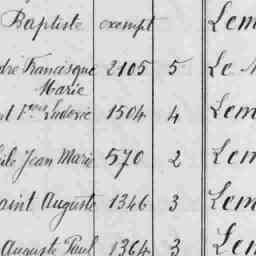 Baptiste exempt Lem
dré Francisque 2105 5 Le
Marie
rt Ludovic 1504 4 Lem
ile Jean Marie 570 2 Lem
aint Auguste 1346 3 Lem
Auguste Paul 1364 3 Len